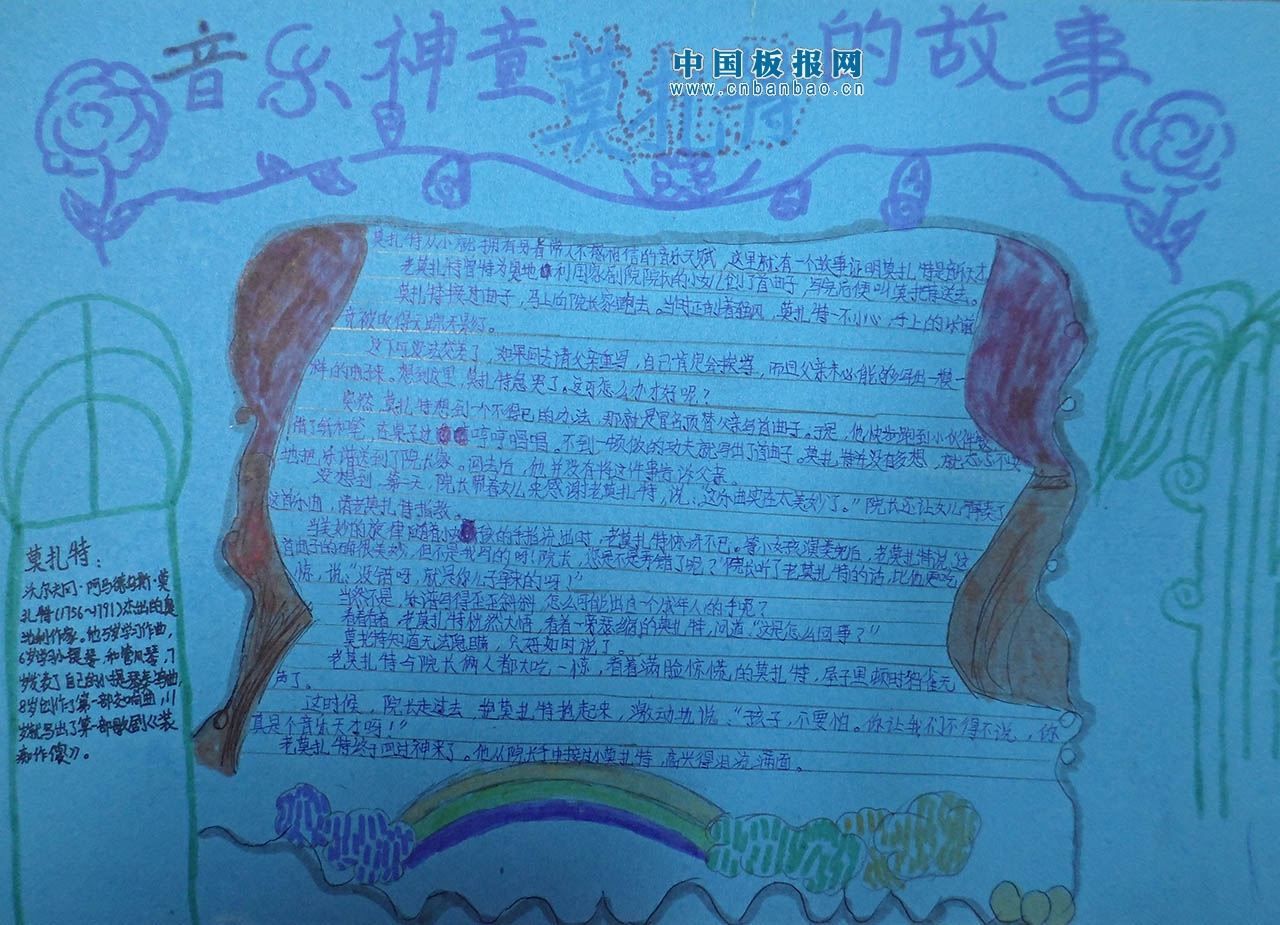 音乐神童莫扎特的故事
中国板报网
www.cnbanbao.cn
莫扎特从小就拥有另着佛人不感相信的音乐天赋，这里就有一个故事证明莫扎特是音乐天才
老莫扎特曾特为奥地利国家剧院院长的小女儿创了首曲子，写完后便叫莫扎特送去。
莫扎特接过曲子，马上向院长家跑去。当时正刮着强风，莫扎特一不小心，手上的乐谱
竟被吹得无踪无影了。
这下可没法交差了，如果回去请父亲重写，自己肯定会挨骂，而且父亲未必能够写出一模一
样的曲子来。想到这里，莫扎特急哭了。这可怎么办才好呢？
突然，莫扎特想到一个不得已的办法，那就是冒名顶替父亲写首曲子。于是，他快步跑到小伙伴家
借了纸和笔，在桌子边哼哼唱唱。不到一顿饭的功夫就写出了首曲子。莫扎特并没有多想，
地把乐谱送到了院长家。回去后，他并没有将这件事告诉父亲。
没想到，第二天，院长带着女儿来感谢老莫扎特，说：这乐曲实在太美妙了。”院长还让女儿弹奏了
这首乐曲，请老莫扎特指教。
当美妙的旋律随着小女孩的手指流出时，老莫扎特惊讶不已。等小女孩演奏完后，老莫扎特说，这
首曲子的确很美妙，但不是我写的呀！院长，您是不是弄错了呢？”院长听了老莫扎特的话，比他更吃
惊，说：“没错呀，就是你儿子拿来的呀！”
当然不是，乐谱写得歪歪斜斜，怎么可能出自一个成年人的手呢？
看着看着，老莫扎特恍然大悟，看着一旁瑟缩的莫扎特，问道：“这是怎么回事？”
莫扎特知道无法隐瞒，只好如实说了。
老莫扎特与院长俩人都大吃一惊，看着满脸惊慌的莫扎特，屋子里顿时鸦雀无
声了。
这时候，院长走过去，把莫扎特抱起来，激动地说：“孩子，不要怕。你让我们不得不说，你
真是个音乐天才吗！”
老莫扎特终于回过神来了。他从院长手中接过小莫扎特，高兴得泪流满面。
莫扎特：
沃尔夫冈·阿马德乌斯·莫
扎特(1756~1791)杰出的奥
地利作家。他5岁学习作曲，
6岁学习小提琴和管风琴，7
岁发表了自己的小提琴奏鸣曲，
8岁创作了第一部交响曲，11
岁就写出了第一部歌剧《装
痴作傻》。